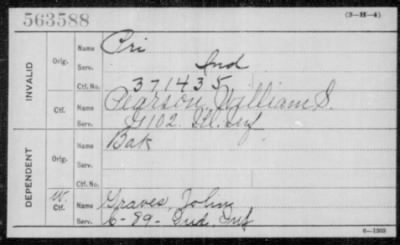 563588
(3-H-4)
INVALID
Orig. Name Pri
Serv. Ind
Ctf. No. 371435
Ctf. Name Pearson, William S.
Serv. G 102. Ill. Inf
DEPENDENT
Orig. Name Bak
Serv.
Ctf. No.
W. Ctf. Name Graves, John
Serv. 6-89- Ind. Inf
6-1302